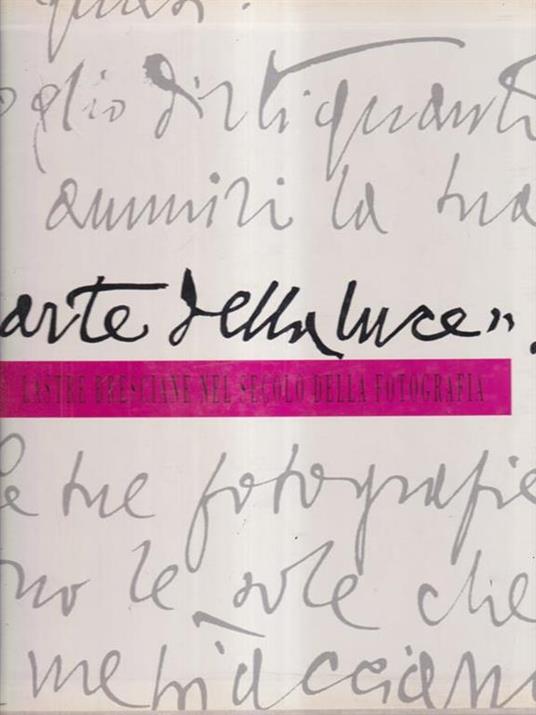 quasi.
oglio dirti quanto
ammiri la tua
arte della luce".
LASTRE BRESCIANE NEL SECOLO DELLA FOTOGRAFIA
Le tue fotografie
no le sole che
me piacciano